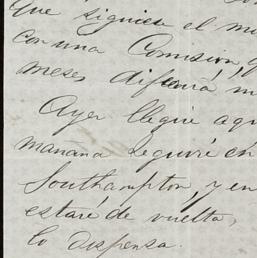 que siguien el
con una Comision
meses
Ayer llegué aqu
mañana seguiré en
Southampton, y en
estaré de vuelta,
lo dispensa.